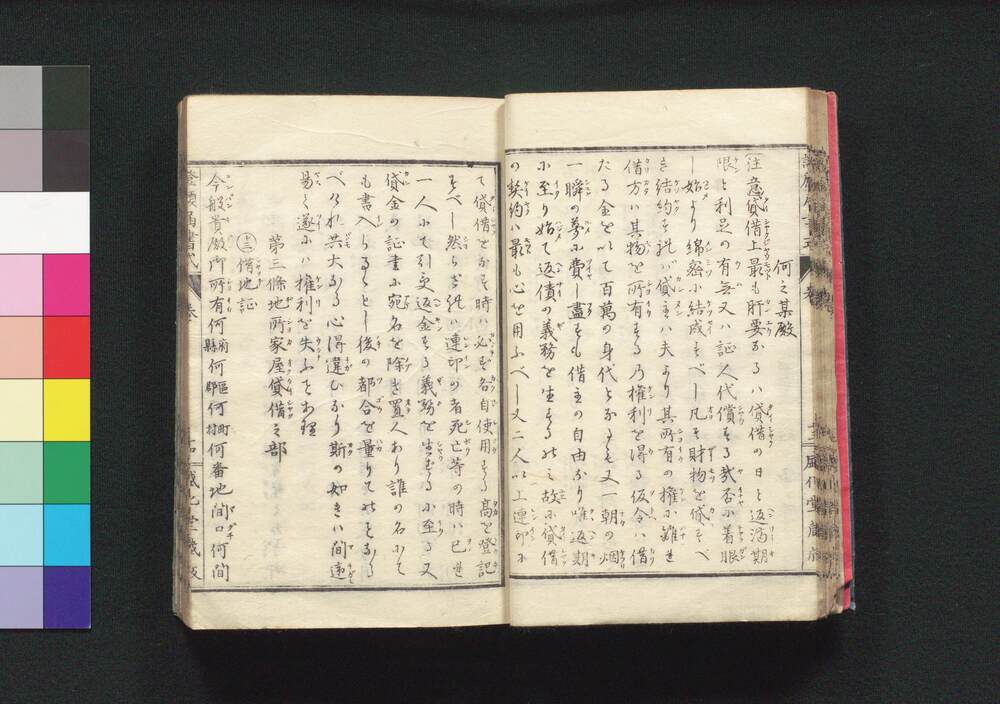 何之某殿
注意貸借上最も肝要なるハ貸借の日と返済期
限と利足の有無又ハ証人代償する哉否に着眼
し始より綿密に結成すべし凡そ財物を貸すべ
き結約を
貸主ハ夫より其所有の権に離れ
借方ハ其物を所有するの権利を得る仮令ハ借
たる金を以て百萬の身代となるも又一朝の烟
一瞬の夢に費し盡すも借主の自由なり唯返期
に至り始て返債の義務を生ずるのミ故に貸借
の契約ハ最も心を用ふべし又二人以上連印に
て貸借をなす時ハ必ず各自使用する高を登記
すべし然らざれハ連印の者死亡等の時ハ已ぜ
一人にて引受返金する義務を生ずるに至る又
貸金の証書に宛名を除き置人あり誰の名にて
も書入らるゝとし後の都合を量りてのする
べけれ共大なる心得違ひなり斯の如きハ間違
易く遂にハ権利を失ふことあり
第三條地所家屋貸借之部
十三 借地証
今般貴殿御所有何府縣何區郡何町村何番地間口何間